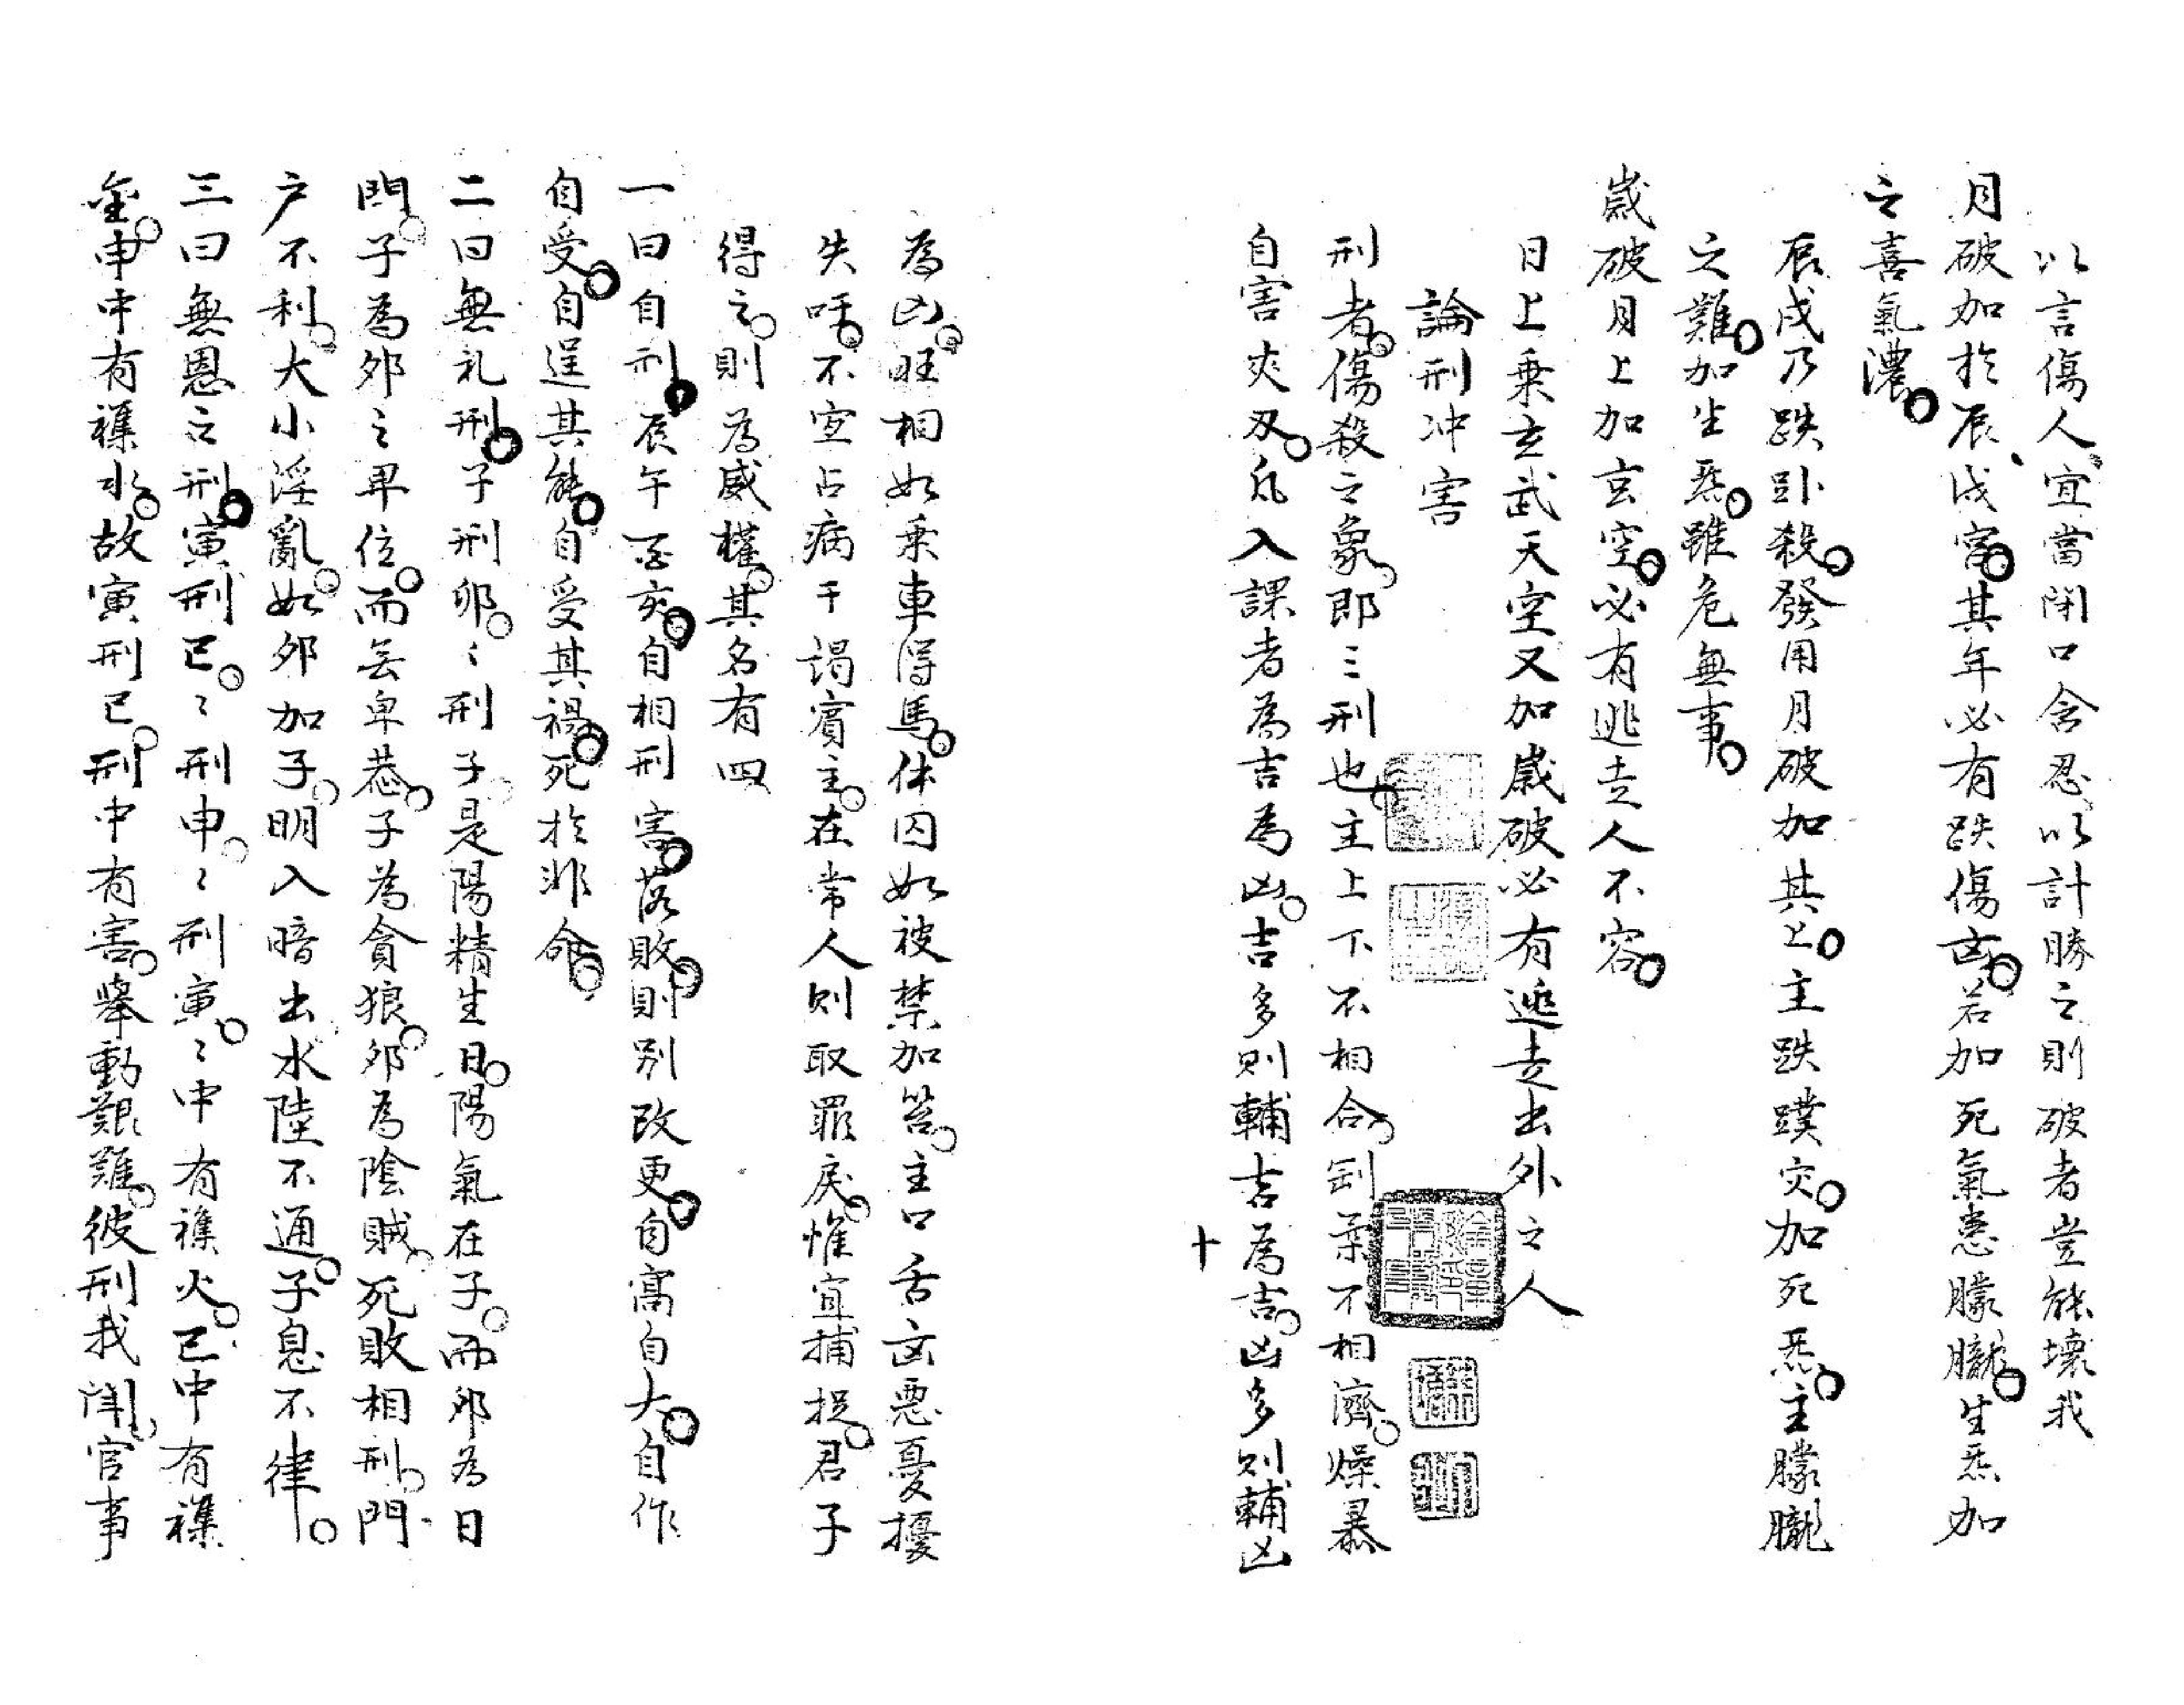 以言傷人宜當閉口含忍以計勝之則破者豈能壞我
月破加於辰戌宮其年必有跌傷凶若加死氣患朦朧生炁加
之喜氣濃
辰戌乃跌卧殺發用月破加其上主跌蹼灾加死炁主朦朧
之難加生炁雖危無事
歲破月上加玄空必有逃走人不容
日上乗玄武天空又加歲破必有逃走出外之人
論刑冲害
刑者傷殺之象即三刑也主上下不相合剛柔不相濟燥暴
自害夾刃凡入課者為吉為凶吉多則輔吉為吉凶多則輔凶
十
為凶旺相如乗車得馬休囚如被禁加笞主口舌凶惡憂擾
失呼不宜占病干謁賓主在常人則取罪戾惟宜捕捉君子
得之則為威權其名有四
一曰自刑辰午酉亥自相刑害落敗則別改更自高自大自作
自受自逞其能自受其禍死於非命
二曰無礼刑子刑卯〻刑子是陽精生日陽氣在子而卯為日
門子為卯之卑位而無卑恭子為貪狼卯為陰賊死敗相刑門
户不利大小淫亂如卯加子明入暗出水陸不通子息不律
三曰無恩之刑寅刑巳〻刑申〻刑寅〻中有襍火巳中有襍
金申中有襍水故寅刑巳刑中有害舉動艱難彼刑我鬪官事